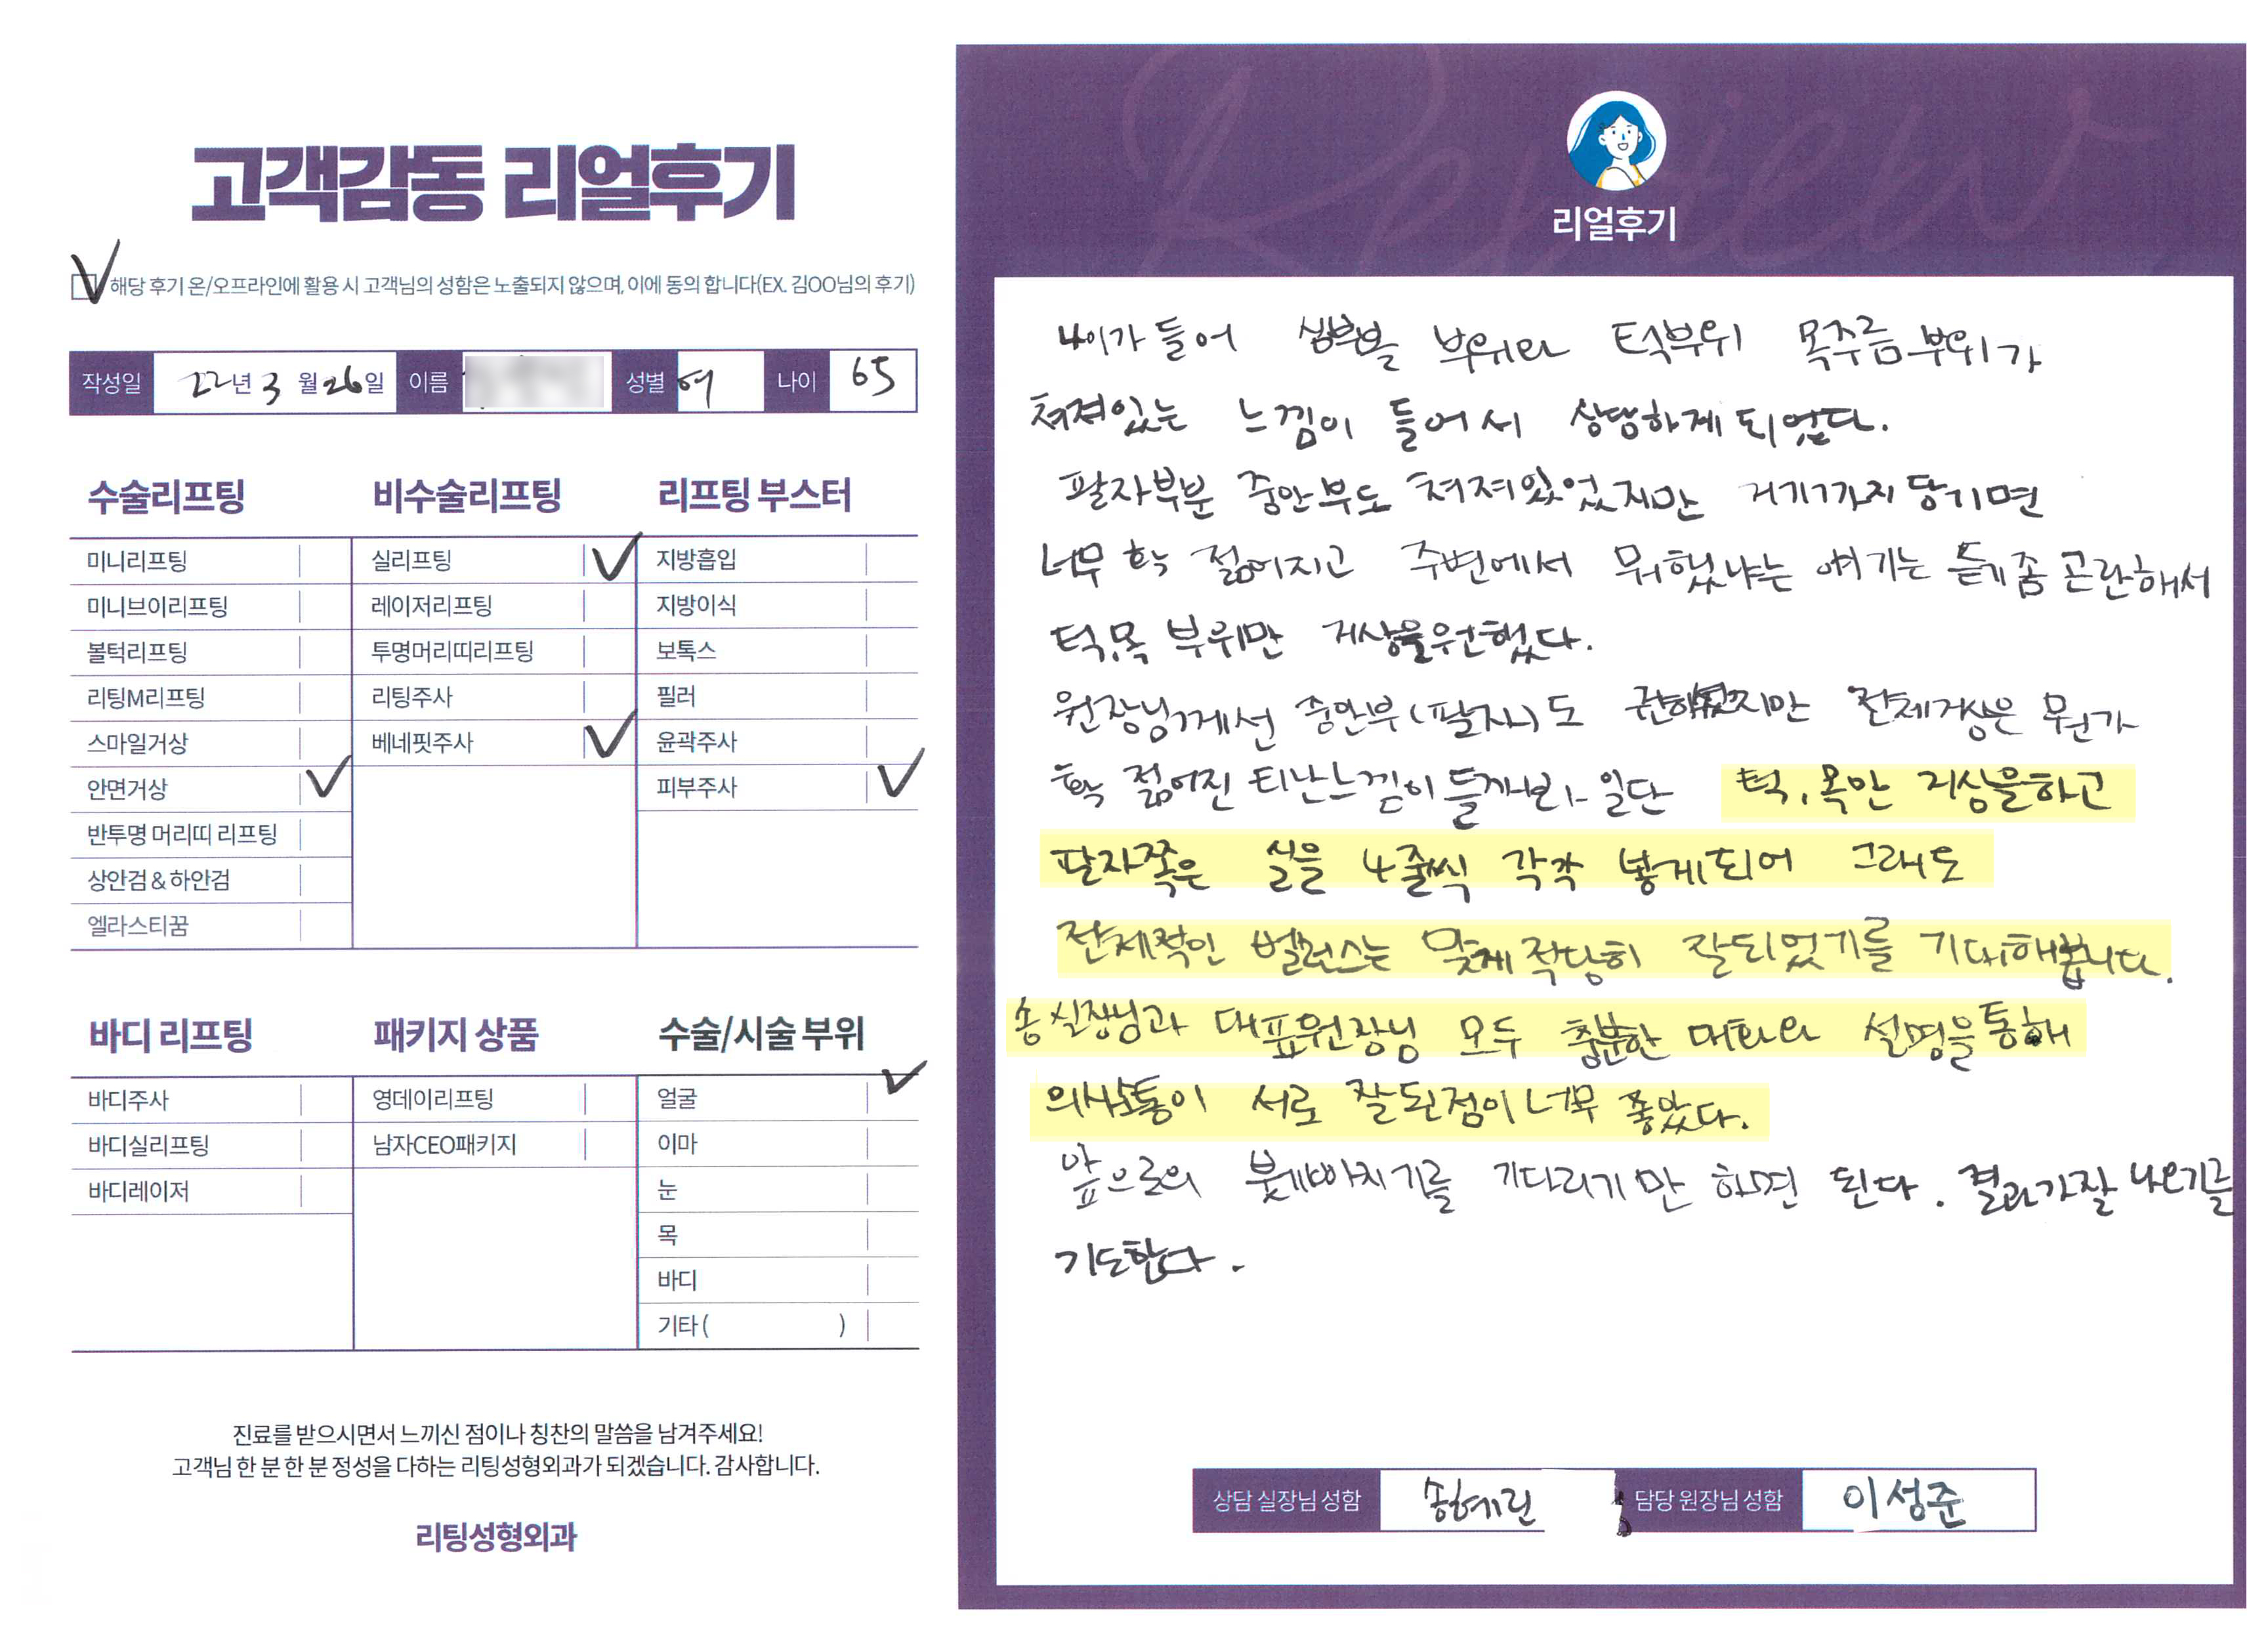 고객감동 리얼후기
해당 후기 온/오프라인에 활용 시 고객님의 성함은 노출되지 않으며, 이에 동의 합니다(EX. 김OO님의 후기)
작성일 22년 3월 26일 이름 성별 여 나이 65
수술리프팅
미니리프팅
미니브이리프팅
볼턱리프팅
리팅M리프팅
스마일거상
안면거상
반투명 머리띠 리프팅
상안검 & 하안검
엘라스티꿈
비수술리프팅
실리프팅
레이저리프팅
투명머리띠리프팅
리팅주사
베네핏주사
리프팅 부스터
지방흡입
지방이식
보톡스
필러
윤곽주사
피부주사
바디 리프팅
바디주사
바디실리프팅
바디레이저
패키지 상품
영데이리프팅
남자CEO패키지
수술/시술 부위
얼굴
이마
눈
목
바디
기타 ( )
진료를 받으시면서 느끼신 점이나 칭찬의 말씀을 남겨주세요!
고객님 한 분 한 분 정성을 다하는 리팅성형외과가 되겠습니다. 감사합니다.
리팅성형외과
Review
리얼후기
나이가 들어 부위와 턱부위 목주름 부위가
쳐져있는 느낌이 들어서 상담하게 되었다.
팔자부분 중안부도 쳐져있었지만 거기까지 당기면
너무 확 젊어지고 주변에서 뭐했냐는 얘기는 듣기 좀 곤란해서
턱,목 부위만 거상을 원했다.
원장님께선 중안부(팔자)도 권하셨지만 전체거상은 뭔가
확 젊어진 티난느낌이 들까봐 일단 턱, 목만 거상을하고
팔자쪽은 실을 4줄씩 각각 넣게되어 그래도
전체적인 벨런스는 맞게 적당히 잘되었기를 기대해봅니다.
송실장님과 대표원장님 모두 충분한 대화와 설명을 통해
의사소통이 서로 잘된점이 너무 좋았다.
앞으로의 붓기빠지기를 기다리기만 하면 된다. 결과가 잘 나오기를
기도한다.
상담 실장님 성함 송혜린 담당 원장님 성함 이성준